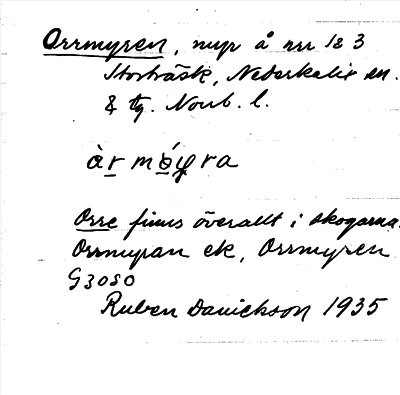 Orrmyren, myr å nr 1 & 3
Storträsk, Nederkalix sn.
& tg. Norrb. l.
àr møyra
Orre finns överallt i skogarna.
Orrmyran ek, Orrmyren
G3080
Ruben Danielsson 1935